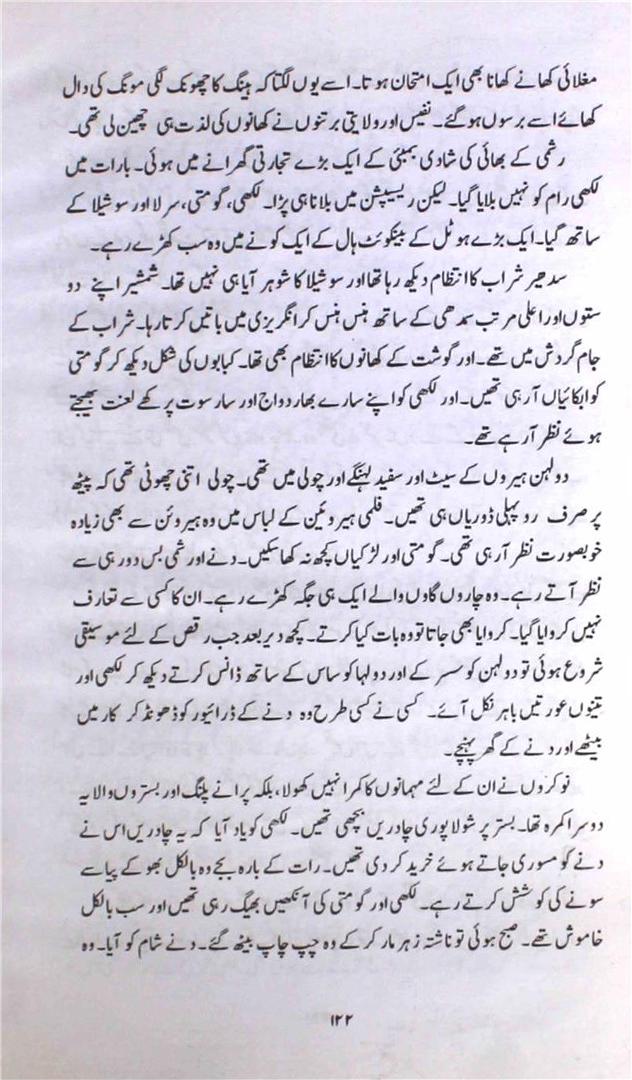 مغلائی کھانے کھانا بھی ایک امتحان ہوتا۔ اسے یوں لگتا کہ ہینگ کا چھونک لگی مونگ کی دال
کھائے اسے برسوں ہوگئے۔ نفیس اور ولایتی برتنوں نے کھانوں کی لذت ہی چھین لی تھی۔
رشمی کے بھائی کی شادی بمبئی کے ایک بڑے تجارتی گھرانے میں ہوئی۔ بارات میں
لکھی رام کو نہیں بلایا گیا۔ لیکن ریسیپشن میں بلانا ہی پڑا۔ لکھی، گومتی، سرلا اور سوشیلا کے
ساتھ گیا۔ ایک بڑے ہوٹل کے بینکوئٹ ہال کے ایک کونے میں وہ سب کھڑے رہے۔
سدھیر شراب کا انتظام دیکھ رہا تھا اور سوشیلا کا شوہر آیا ہی نہیں تھا۔ شمشیر اپنے دو
ستوں اور اعلی مرتب سمدھی کے ساتھ ہنس ہنس کر انگریزی میں باتیں کرتا رہا۔ شراب کے
جام گردش میں تھے۔ اور گوشت کے کھانوں کا انتظام بھی تھا۔ کبابوں کی شکل دیکھ کر گومتی
کو ابکائیاں آرہی تھیں۔ اور لکھی کو اپنے سارے بھاردواج اور سارسوت پرکھے لعنت بھیجتے
ہوئے نظر آرہے تھے۔
دولہن ہیروں کے سیٹ اور سفید لہنگے اور چولی میں تھی۔ چولی اتنی چھوٹی تھی کہ پیٹھ
پر صرف روپہلی ڈوریاں ہی تھیں۔ فلمی ہیروئین کے لباس میں وہ ہیروئن سے بھی زیادہ
خوبصورت نظر آرہی تھی۔ گومتی اور لڑکیاں کچھ نہ کھا سکیں۔ دنے اور شمی بس دور ہی سے
نظر آتے رہے۔ وہ چاروں گاوں والے ایک ہی جگہ کھڑے رہے۔ ان کا کسی سے تعارف
نہیں کروایا گیا۔ کروایا بھی جاتا تو وہ بات کیا کرتے۔ کچھ دیر بعد جب رقص کے لئے موسیقی
شروع ہوئی تو دولہن کو سسر کے اور دولہا کو ساس کے ساتھ ڈانس کرتے دیکھ کر لکھی اور
تینوں عورتیں باہر نکل آئے۔ کسی نے کسی طرح وہ دنے کے ڈرائیور کو ڈھونڈ کر کار میں
بیٹھے اور دنے کے گھر پہنچے۔
نوکروں نے ان کے لئے مہمانوں کا کمرا نہیں کھولا، بلکہ پرانے پلنگ اور بستروں والا یہ
دوسرا کمرہ تھا۔ بستر پر شولا پوری چادریں بچھی تھیں۔ لکھی کو یاد آیا کہ یہ چادریں اس نے
دنے کو مسوری جاتے ہوئے خرید کر دی تھیں۔ رات کے بارہ بجے وہ بالکل بھوکے پیاسے
سونے کی کوشش کرتے رہے۔ لکھی اور گومتی کی آنکھیں بھیگ رہی تھیں اور سب بالکل
خاموش تھے۔ صبح ہوئی تو ناشتہ زہر مار کر کے وہ چپ چاپ بیٹھ گئے۔ دنے شام کو آیا۔ وہ
۱۲۲